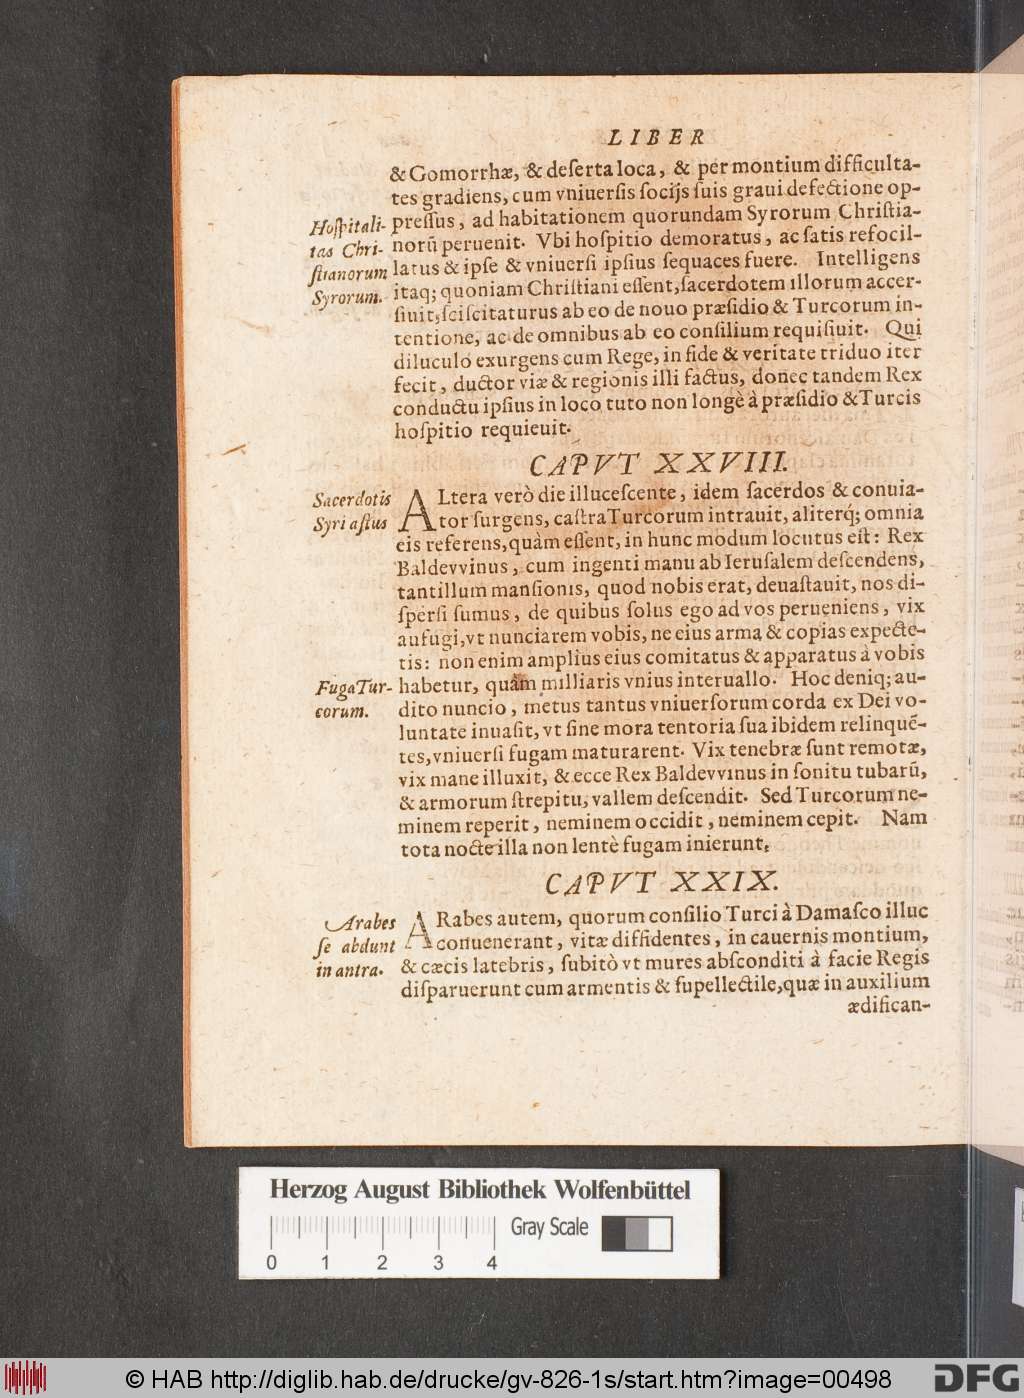 LIBER
& Gomorrhæ, & deserta loca, & per montium difficulta-
tes gradiens, cum vniuersis socijs suis graui defectione op-
Hospitali-
tas Chri-
stianorum
Syrorum.
pressus, ad habitationem quorundam Syrorum Christia-
norū peruenit. Vbi hospitio demoratus, ac satis refocil-
latus & ipse & vniuersi ipsius sequaces fuere. Intelligens
itaq; quoniam Christiani essent, sacerdotem illorum accer-
siuit, sciscitaturus ab eo de nouo præsidio & Turcorum in-
tentione, ac de omnibus ab eo consilium requisiuit. Qui
diluculò exurgens cum Rege, in fide & veritate triduo iter
fecit, ductor viæ & regionis illi factus, donec tandem Rex
conductu ipsius in loco tuto non longè à præsidio & Turcis
hospitio requieuit.
CAPVT XXVIII.
Sacerdotis
Syri astus
ALtera verò die illucescente, idem sacerdos & conuia-
tor surgens, castra Turcorum intrauit, aliterq́; omnia
eis referens, quàm essent, in hunc modum locutus est: Rex
Baldevvinus, cum ingenti manu ab Ierusalem descendens,
tantillum mansionis, quod nobis erat, deuastauit, nos di-
spersi sumus, de quibus solus ego ad vos perueniens, vix
aufugi, vt nunciarem vobis, ne eius arma & copias expecte-
tis: non enim ampliùs eius comitatus & apparatus à vobis
Fuga Tur-
corum.
habetur, quàm milliaris vnius interuallo. Hoc deniq; au-
dito nuncio, metus tantus vniuersorum corda ex Dei vo-
luntate inuasit, vt sine mora tentoria sua ibidem relinquē-
tes, vniuersi fugam maturarent. Vix tenebræ sunt remotæ,
vix mane illuxit, & ecce Rex Baldevvinus in sonitu tubarū,
& armorum strepitu, vallem descendit. Sed Turcorum ne-
minem reperit, neminem occidit, neminem cepit. Nam
tota nocte illa non lentè fugam inierunt.
CAPVT XXIX.
Arabes
se abdunt
in antra.
ARabes autem, quorum consilio Turci à Damasco illuc
conuenerant, vitæ diffidentes, in cauernis montium,
& cæcis latebris, subitò vt mures absconditi à facie Regis
disparuerunt cum armentis & supellectile, quæ in auxilium
ædifican-
Herzog August Bibliothek Wolfenbüttel
Gray Scale
0 1 2 3 4
© HAB http://diglib.hab.de/drucke/gv-826-1s/start.htm?image=00498
DFG